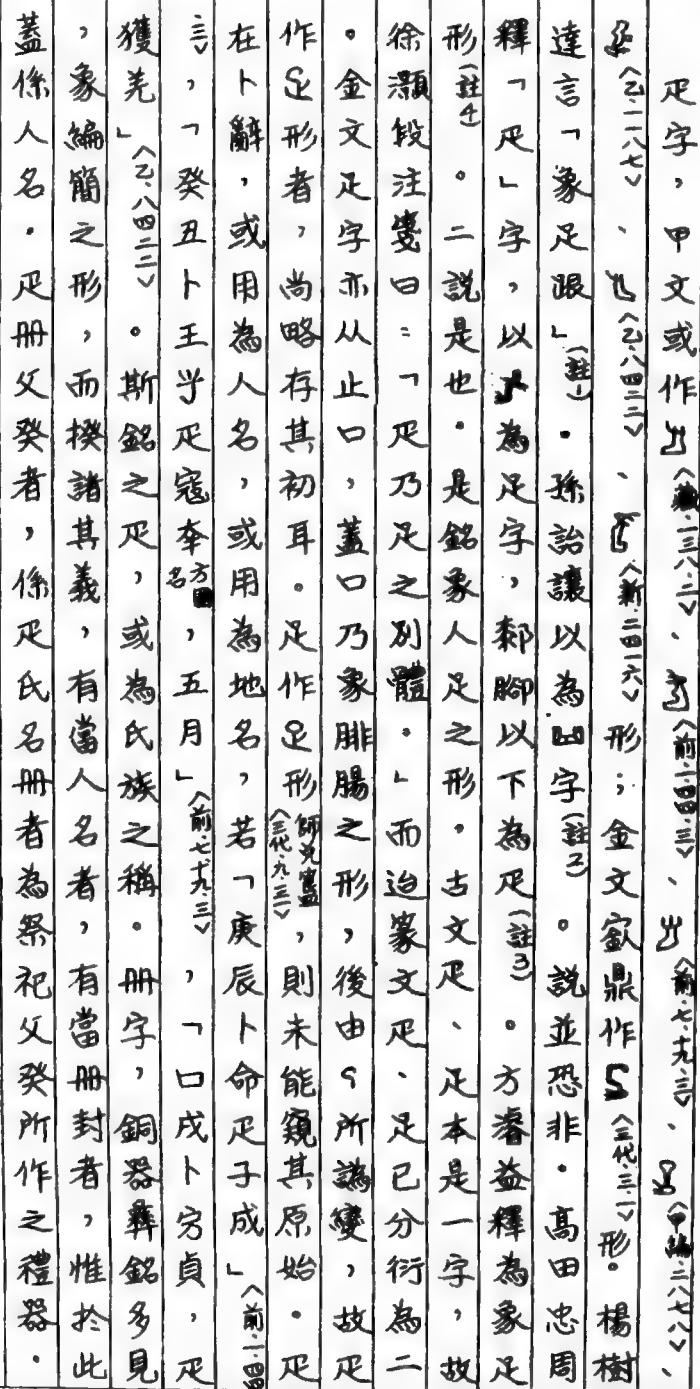 疋字，甲文或作〈藏·一三八·二〉、〈前·一·四四·三〉、〈前·七·十九·三〉、〈甲編·二八七八〉、
〈乙·一一八七〉、〈乙·八四二二〉、〈新·二四一六〉形；金文㱃鼎作〈三代·三·一〉形。楊樹
達言「象足跟」(註1)。孫詒讓以為字(註2)。說並恐非。高田忠周
釋「疋」字，以為足字，郄腳以下為疋(註3)。方濬益釋為象足
形(註4)。二說是也。是銘象人足之形。古文疋、足本是一字，故
徐灝段注箋曰：「疋乃足之別體。」而迨篆文疋、足已分衍為二
。金文足字亦从止口，蓋口乃象腓腸之形，後由所譌變，故疋
作形者，尚略存其初耳。足作形〈師兌簋三代·九·三一〉，則未能窺其原始。疋
在卜辭，或用為人名，或用為地名，若「庚辰卜命疋子成」〈前·一·四四
·三〉，「癸丑卜王疋寇方名，五月」〈前·七·十九·三〉，「口戌卜㝑貞，疋
獲羌」〈乙·八四二二〉。斯銘之疋，或為氏族之稱。冊字，銅器彝銘多見
，象編簡之形，而揆諸其義，有當人名者，有當冊封者，惟於此
蓋係人名。疋冊父癸者，係疋氏名冊者為祭祀父癸所作之禮器。